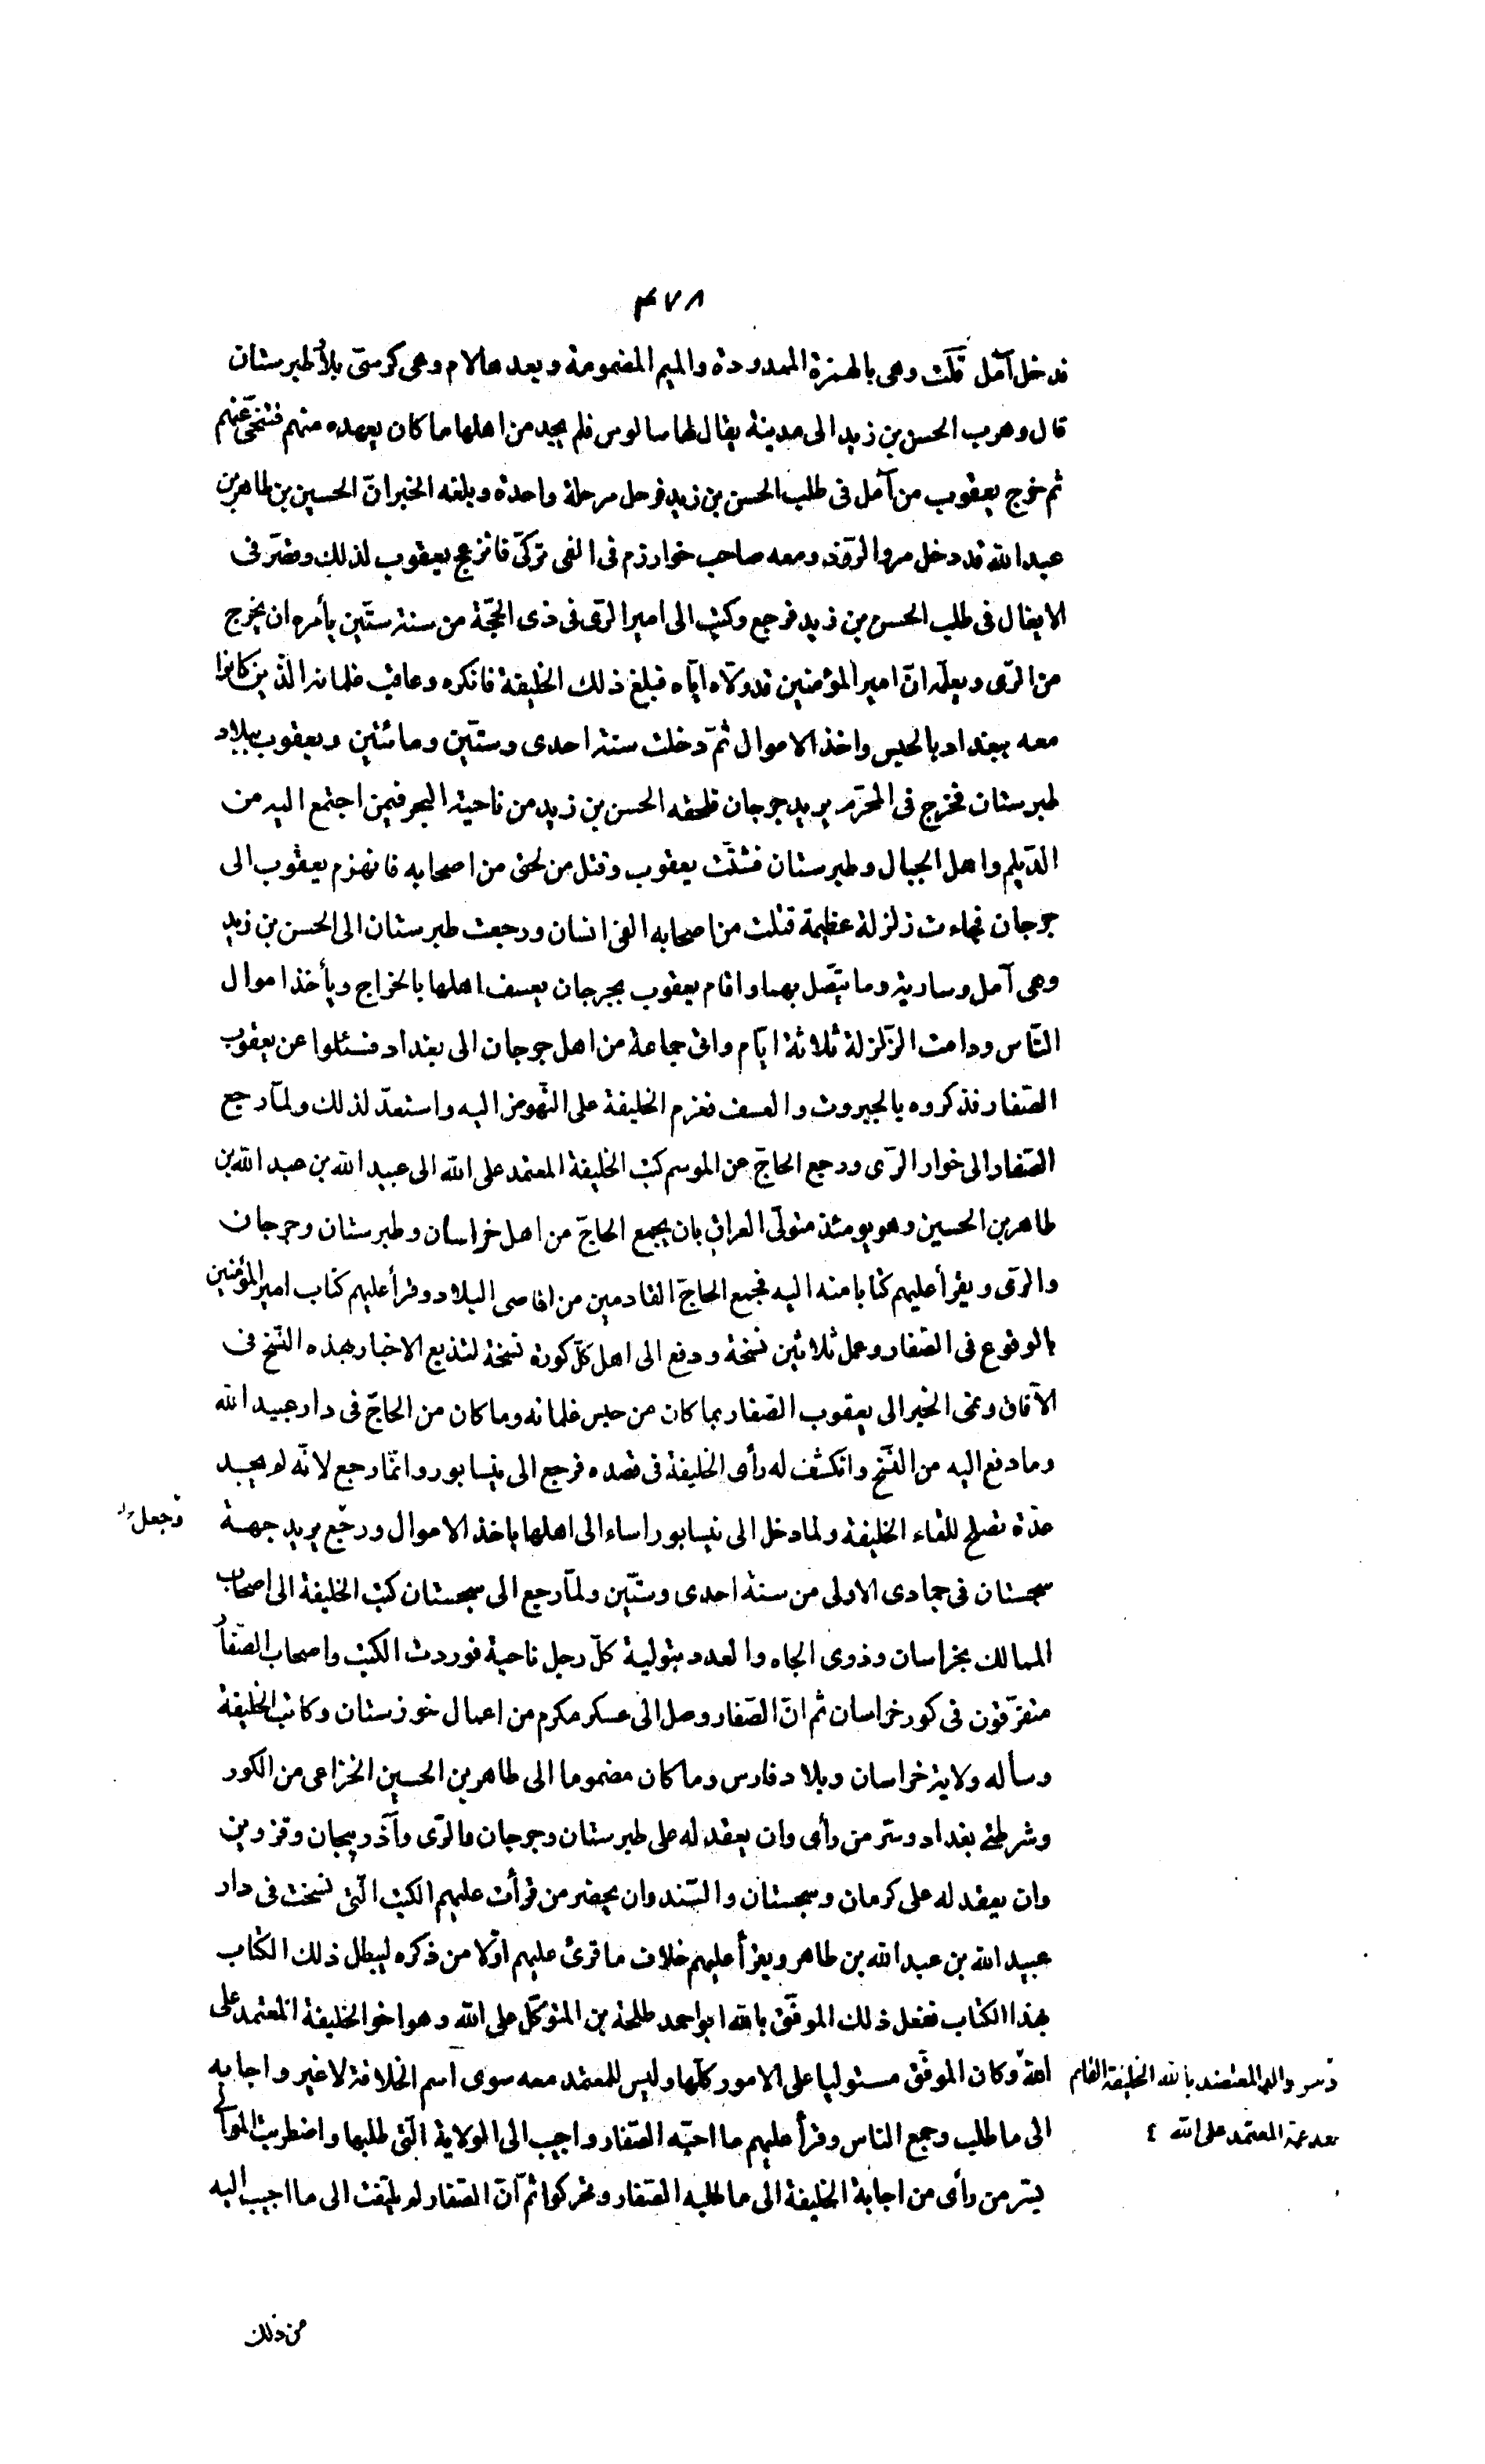 ٤٧٨
فدخل آمل قلت وهى بالهمزة الممدودة والميم المضمومة وبعدها لام وهى كرسىّ بلاد طبرستان
قال وهرب الحسن بن زيد الى مدينة يقال لها سالوس فلم يجد من اهلها ما كان يعهده منهم فتنحّى عنهم
ثم خرج يعقوب من آمل فى طلب الحسن بن زيد فرحل مرحلة واحدة وبلغه الخبر انّ الحسين بن طاهر بن
عبد الله قد دخل مرو الروذ ومعه صاحب خوارزم فى الفى تركىّ فانزعج يعقوب لذلك وقصّر فى
الايغال فى طلب الحسن بن زيد فرجع وكتب الى امير الرّى فى ذى الحجّة من سنة ستّين يأمره ان يخرج
من الرّى ويعلمه انّ امير المؤمنين قد ولّاه ايّاه فبلغ ذلك الخليفة فانكره وعاقب غلمانه الذين كانوا
معه ببغداد بالحبس واخذ الاموال ثمّ دخلت سنة احدى وستّين ومائتين ويعقوب ببلاد
طبرستان فخرج فى المحرّم يريد جرجان فلحقه الحسن بن زيد من ناحية البحر فيمن اجتمع اليه من
الدّيلم واهل الجبال وطبرستان فشتّت يعقوب وقتل من لحق من اصحابه فانهزم يعقوب الى
جرجان فجاءت زلزلة عظيمة قتلت من اصحابه الفى انسان ورجعت طبرستان الى الحسن بن زيد
وهى آمل وسارية وما يتّصل بهما واقام يعقوب بجرجان يعسف اهلها بالخراج ويأخذ اموال
النّاس ودامت الزّلزلة ثلاثة ايّام وافى جماعة من اهل جرجان الى بغداد فسئلوا عن يعقوب
الصّفار فذكروه بالجبروت والعسف فعزم الخليفة على النّهوض اليه واستعدّ لذلك ولمّا رجع
الصّفار الى خوار الرّى ورجع الحاجّ عن الموسم كتب الخليفة المعتمد على الله الى عبيد الله بن عبد الله بن
طاهر بن الحسين وهو يومئذ متولّى العراق بان يجمع الحاجّ من اهل خراسان وطبرستان وجرجان
والرّى ويقرأ عليهم كتابا منه اليه فجمع الحاجّ القادمين من اقاصى البلاد وقرأ عليهم كتاب امير المؤمنين
بالوقوع فى الصّفار وعمل ثلاثين نسخة ودفع الى اهل كلّ كورة نسخة لتذيع الاخبار بهذه النّسخ فى
الآفاق ونمى الخبر الى يعقوب الصّفار بما كان من حبس غلمانه وما كان من الحاجّ فى دار عبيد الله
وما دفع اليه من النّسخ وانكشف له رأى الخليفة فى قصده فرجع الى نيسابور وانّما رجع لانّه لم يجد
عدّة تصلح للقاء الخليفة ولما دخل الى نيسابور اساء الى اهلها باخذ الاموال ورجّع يريد جهة
وجعل
سجستان فى جمادى الاولى من سنة احدى وستّين ولمّا رجع الى سجستان كتب الخليفة الى اصحاب
الممالك بخراسان وذوى الجاه والعدد بتولية كلّ رجل ناحية فوردت الكتب واصحاب الصّفار
متفرّقون فى كور خراسان ثم انّ الصّفار وصل الى عسكر مكرم من اعمال خوزستان وكاتب الخليفة
وسأله ولاية خراسان وبلاد فارس وما كان مضموما الى طاهر بن الحسين الخزاعى من الكور
وشرطتى بغداد وسرّ من رأى وان يعقد له على طبرستان وجرجان والرّى وآذربيجان وقزوين
وان يعقد له على كرمان وسجستان والسّند وان يحضر من قرأت عليهم الكتب الّتى نسخت فى دار
عبيد الله بن عبد الله بن طاهر ويقرأ عليهم خلاف ما قرئ عليهم اوّلا من ذكره ليبطل ذلك الكتاب
بهذا الكتاب ففعل ذلك الموفّق بالله ابو احمد طلحة بن المتوكّل على الله وهو اخو الخليفة المعتمد على
الله وكان الموفّق مستوليا على الامور كلّها وليس للمعتمد معه سوى اسم الخلافة لا غير واجابه
والد المعتضد بالله الخليفة القائم
بعد عمّه المعتمد على الله ٤
الى ما طلب وجمع الناس وقرأ عليهم ما احبّه الصّفار واجيب الى الولاية الّتى طلبها واضطربت الموالى
بسرّ من رأى من اجابة الخليفة الى ما طلبه الصّفار وتحركوا ثمّ انّ الصّفار لم يلتفت الى ما اجيب اليه
من ذلك